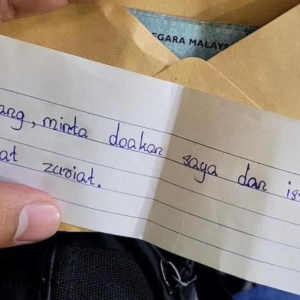 EGARA MALAYS
ang, minta doakan saya dan is
at zuriat.